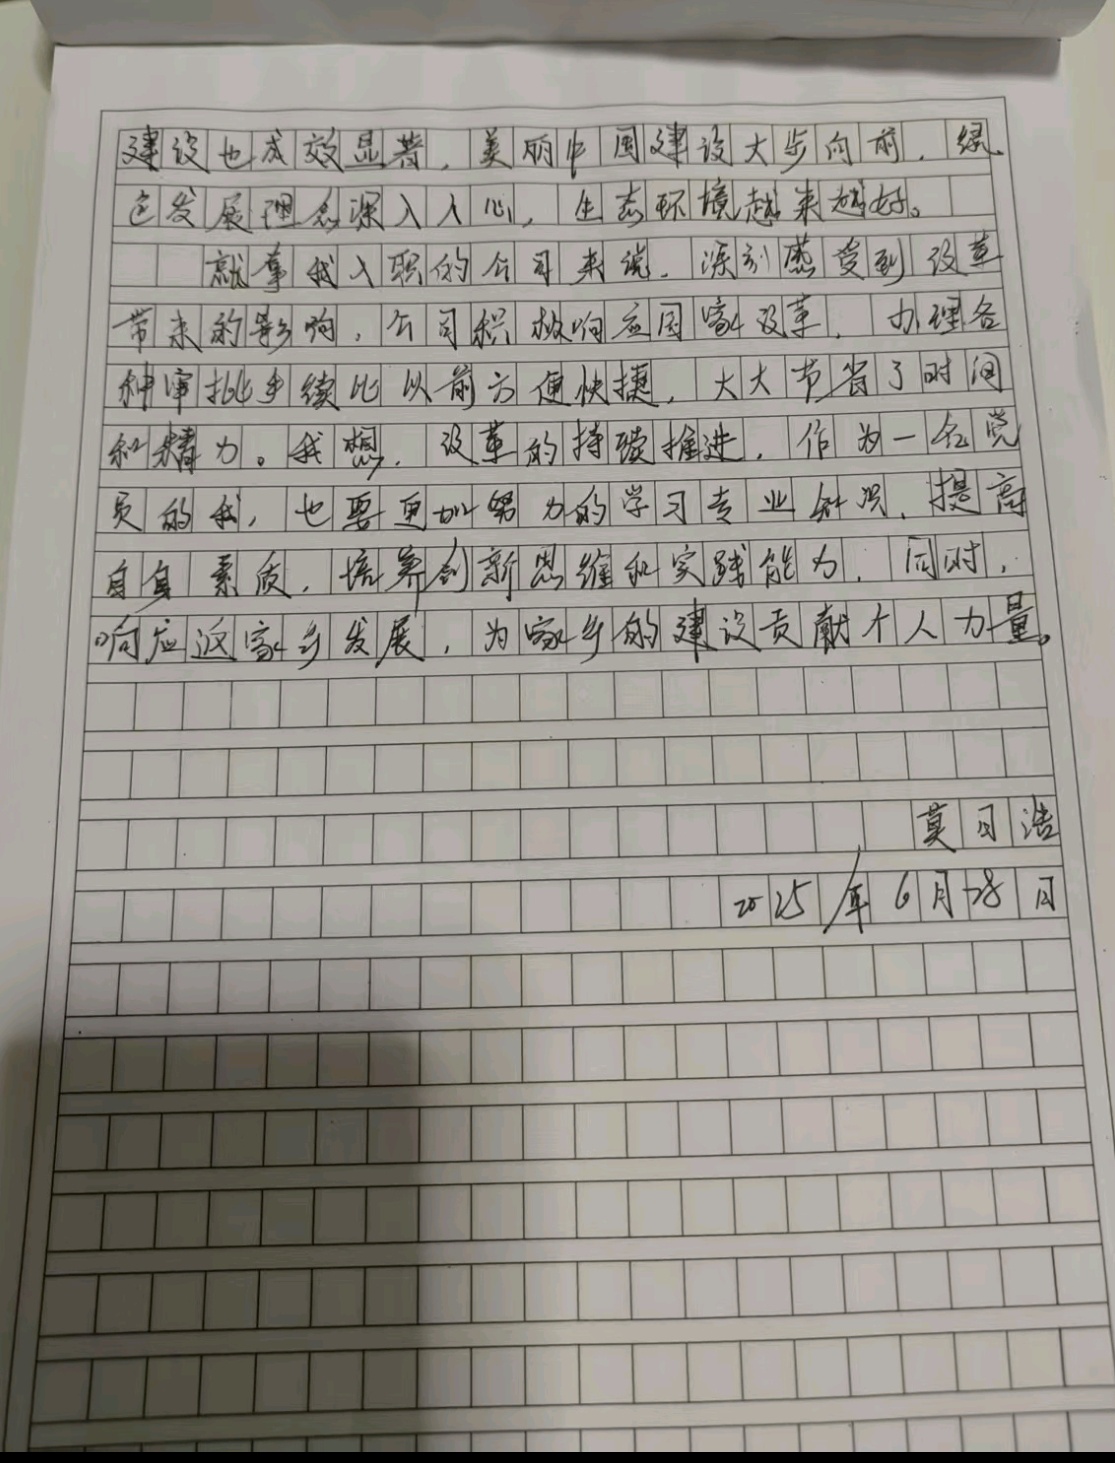 建设也成效显著，美丽中国建设大步向前，绿
色发展理念深入人心，生态环境越来越好。
就拿我入职的公司来说，深刻感受到改革
带来的影响，公司积极响应国家改革，办理各
种审批手续比以前方便快捷，大大节省了时间
和精力。我想，改革的持续推进，作为一名党
员的我，也要更加努力的学习专业知识，提高
自身素质，培养创新思维和实践能力，同时，
响应返家乡发展，为家乡的建设贡献个人力量。
莫日浩
2025年6月28日